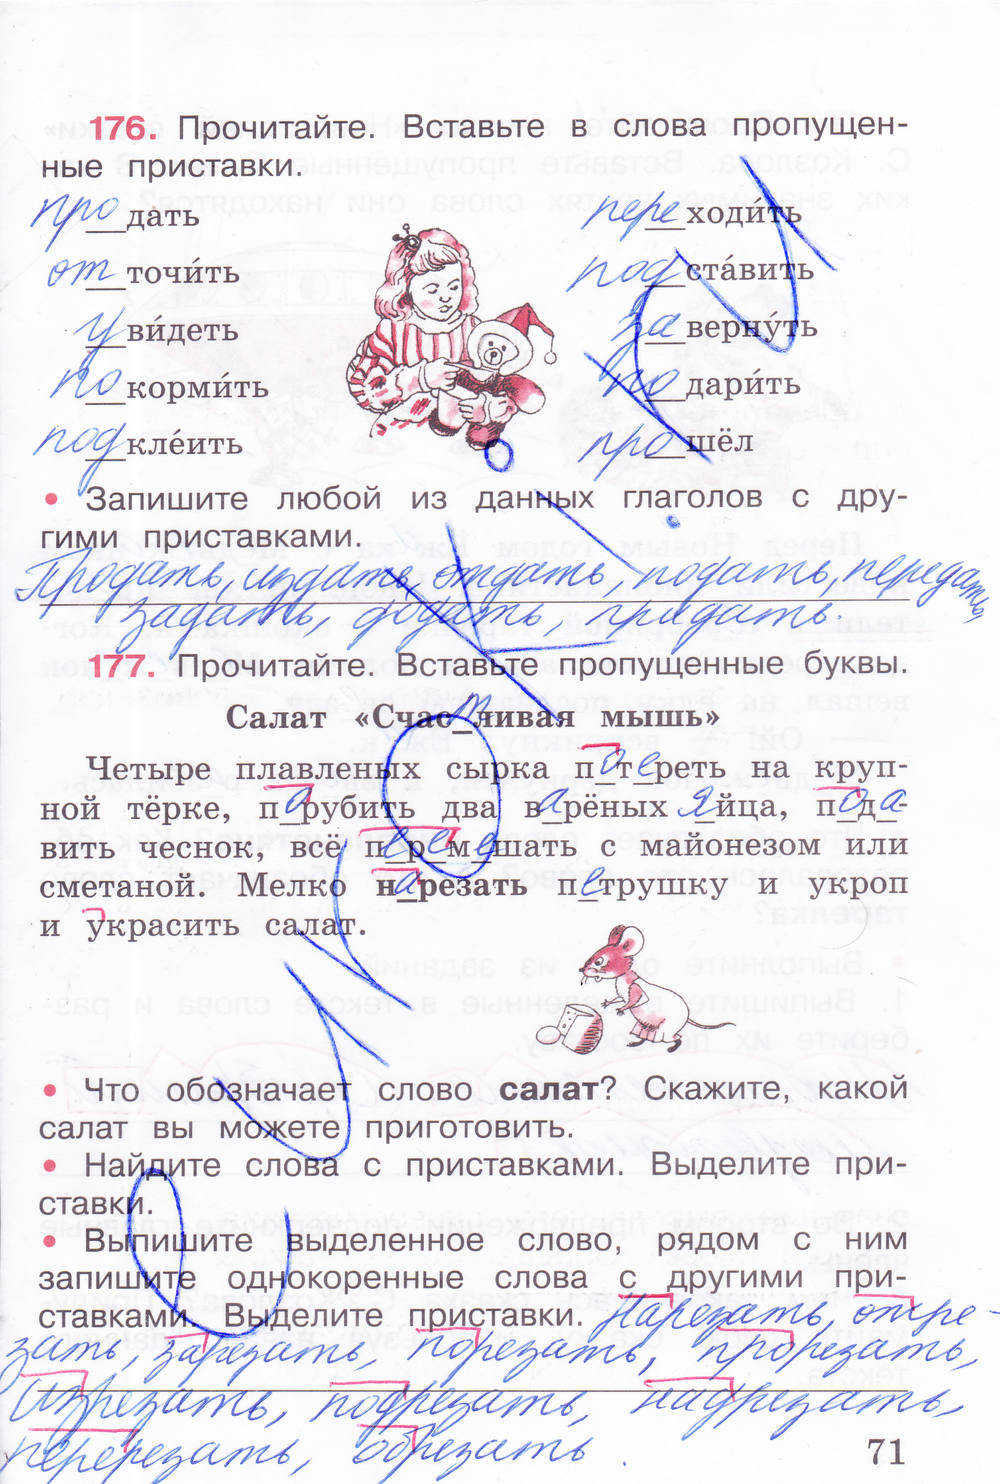 176. Прочитайте. Вставьте в слова пропущен-
ные приставки.
продать переходи́ть
отточи́ть подста́вить
уви́деть заверну́ть
покорми́ть подари́ть
подкле́ить прошёл
• Запишите любой из данных глаголов с дру-
гими приставками.
Продать, издать, отдать, подать, передать,
задать, додать, придать.
177. Прочитайте. Вставьте пропущенные буквы.
Салат «Счастливая мышь»
Четыре плавленых сырка потереть на круп-
ной тёрке, порубить два варёных яйца, пода-
вить чеснок, всё перемешать с майонезом или
сметаной. Мелко нарезать петрушку и укроп
и украсить салат.
• Что обозначает слово салат? Скажите, какой
салат вы можете приготовить.
• Найдите слова с приставками. Выделите при-
ставки.
• Выпишите выделенное слово, рядом с ним
запишите однокоренные слова с другими при-
ставками. Выделите приставки. Нарезать, отре-
зать, зарезать, порезать, прорезать,
изрезать, подрезать, надрезать,
перерезать, обрезать.
71